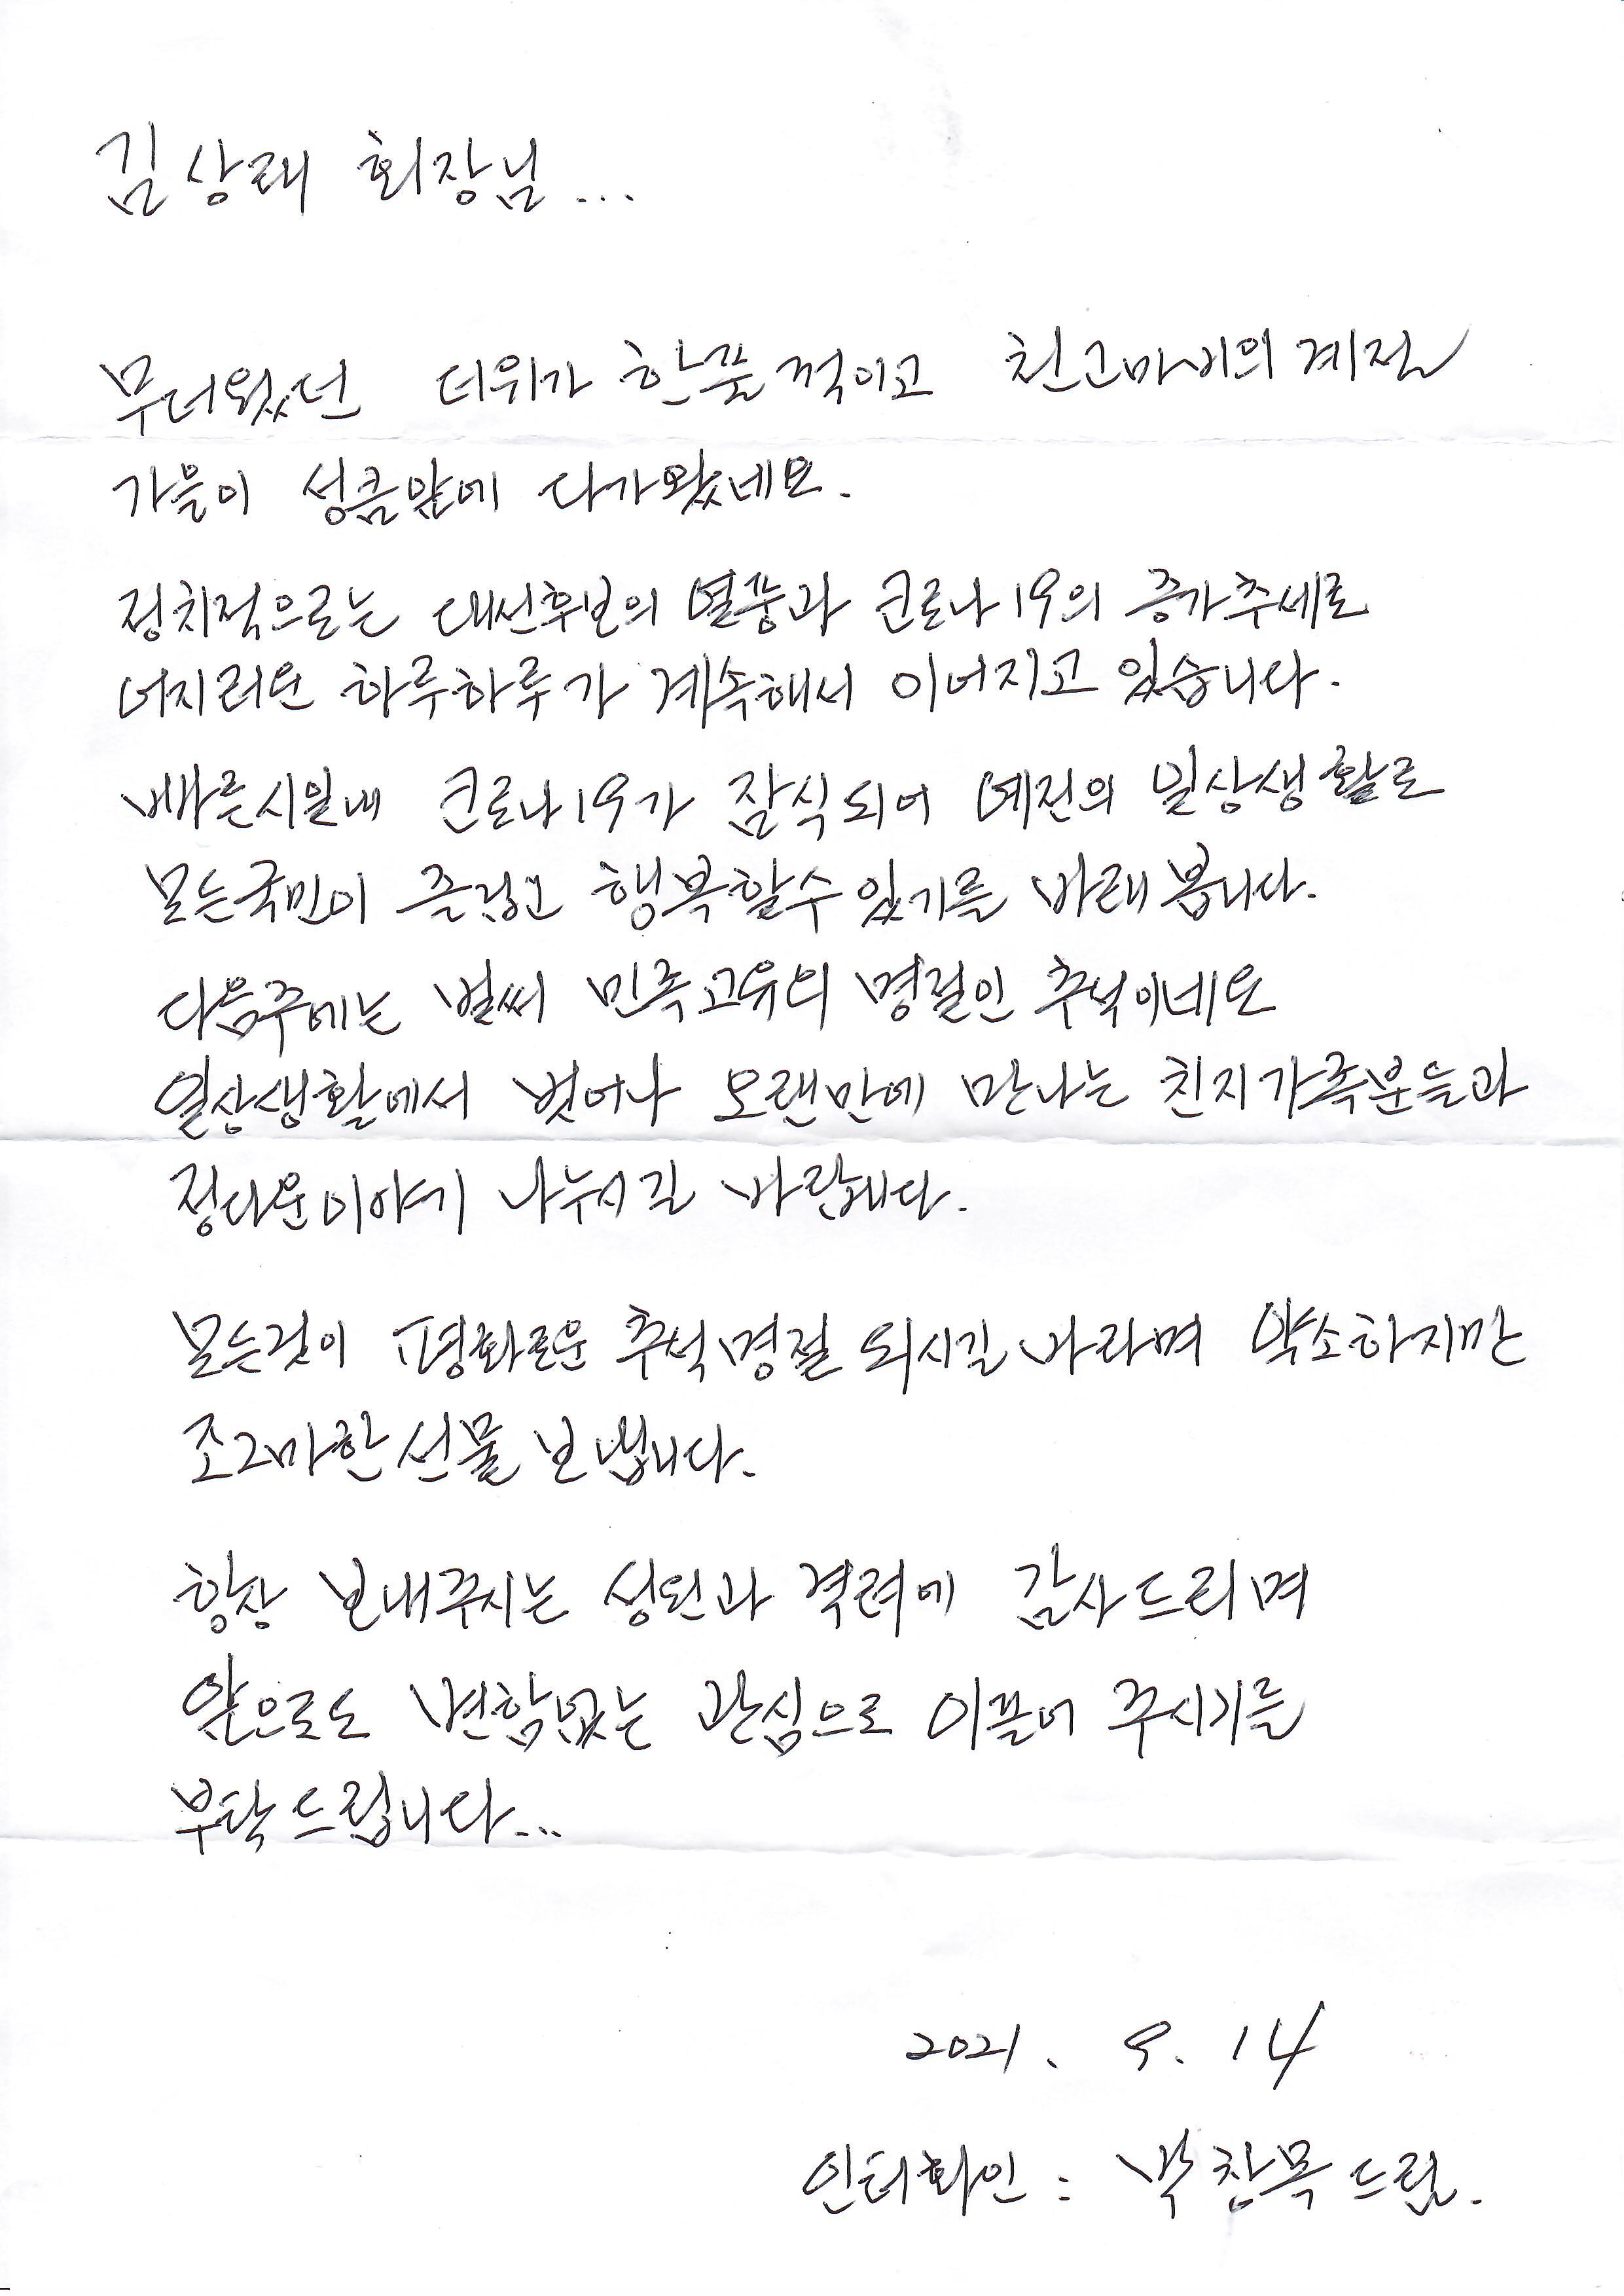 김상태 회장님...
무더웠던 더위가 한풀 꺽이고 천고마비의 계절
가을이 성큼앞에 다가왔네요.
정치적으로는 대선후보의 열풍과 코로나19의 증가추세로
어지러운 하루하루가 계속해서 이어지고 있습니다.
빠른시일내 코로나19가 잠식되어 예전의 일상생활로
모든국민이 즐겁고 행복할수있기를 바래봅니다.
다음주에는 벌써 민족고유의 명절인 추석이네요
일상생활에서 벗어나 오랜만에 만나는 친지가족분들과
정다운이야기 나누시길 바랍니다.
모든것이 평화로운 추석명절 되시길 바라며 약소하지만
조그마한 선물 보냅니다.
항상 보내주시는 성원과 격려에 감사드리며
앞으로도 변함없는 관심으로 이끌어 주시기를
부탁드립니다...
2021. 9. 14
인터화인 : 박창목 드림.